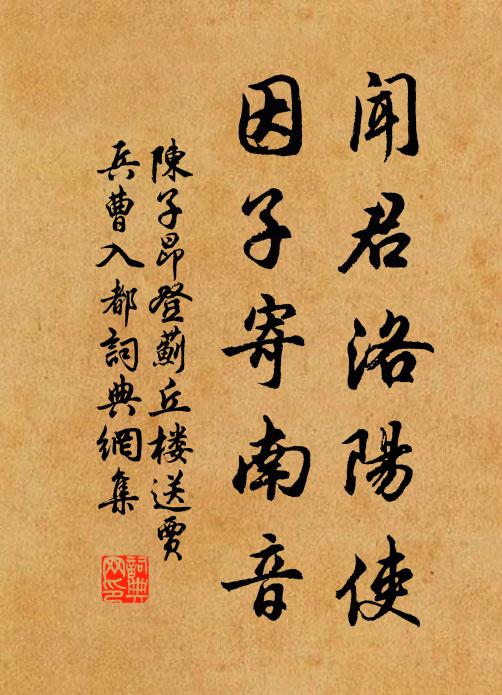 聞君洛陽使
因子寄南音
陳子昂登薊丘樓送賈
兵曹入都詞典網集
詞典
网印